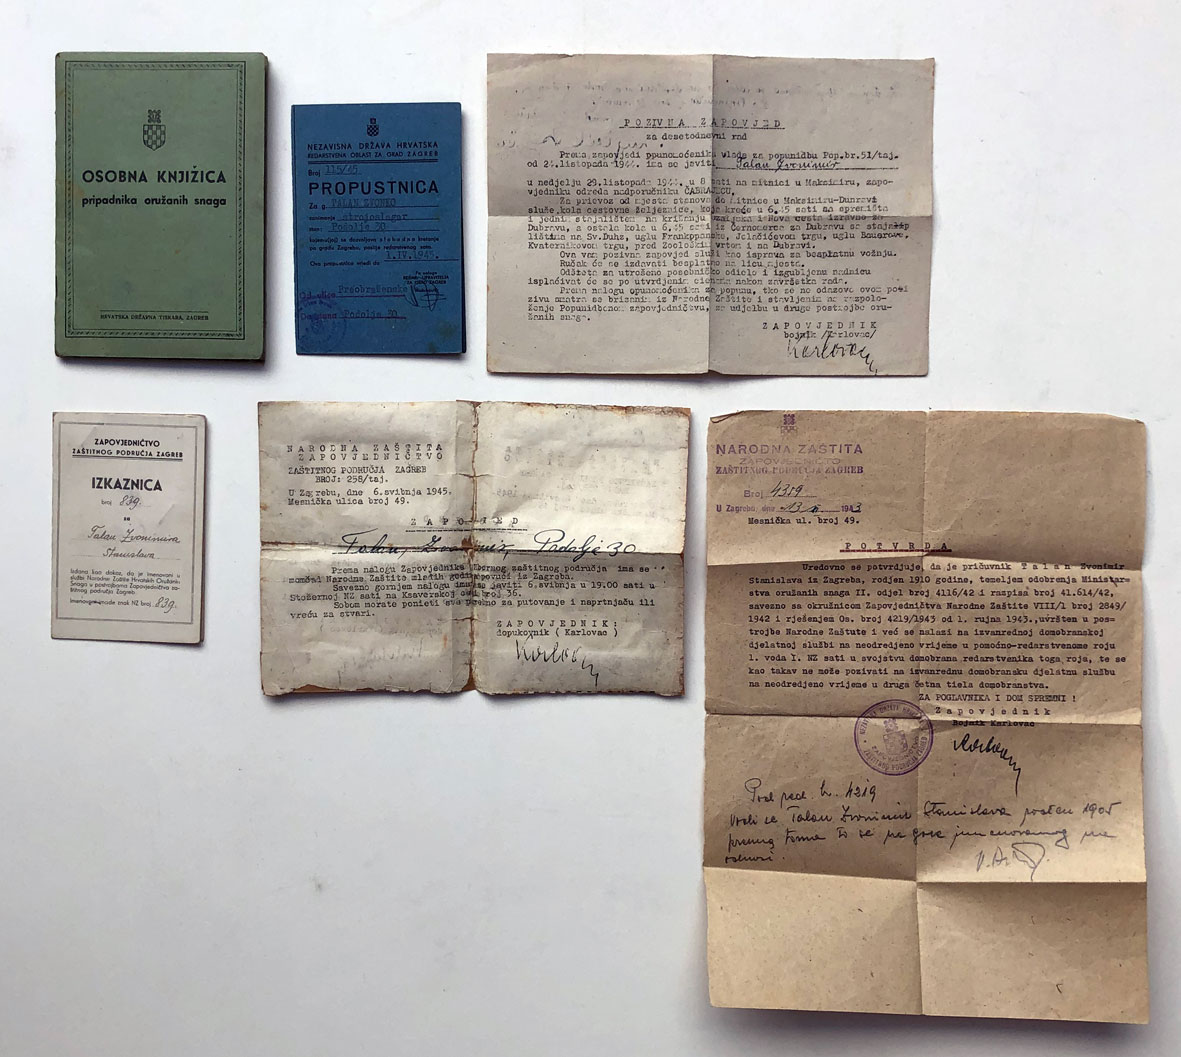 OSOBNA KNJIŽICA
pripadnika oružanih snaga
HRVATSKA DRŽAVNA TISKARA, ZAGREB
NEZAVISNA DRŽAVA HRVATSKA
REDARSTVENA OBLAST ZA GRAD ZAGREB
Broj 115/45.
PROPUSTNICA
Za g. TALAN ZVONKO
zanimanje strojoslagar
stan: Podolje 30
kojem(joj) se dozvoljava slobodno kretanje
po gradu Zagrebu, poslije redarstvenog sata.
Ova propustnica vriedi do 1.IV.1945.
Preobraženska
Podolja 30
POZIVNA ZAPOVJED
za desetodnevni rad
Prema zapovjedi opunomoćenika vlade za popunidbu Pop.br.51/taj.
od 24.listopada 1944. ima se javiti Talan Zvonimir
u nedjelju 29.listopada 1944. u 8 sati na mitnici u Maksimiru, zapo-
vjedniku odreda nadporučniku ČABRAJCU.
Za prievoz od mjesta stanova do Mitnice u Maksimiru-Dubravi
služe kola cestovne željeznice, koja kreće u 6,45 sati sa spremišta
i jednim stajalištem na križanju Ozaljska i Nova cesta izravno za
Dubravu, a ostala kola u 6,45 sati iz Černomerca za Dubravu sa stajali-
lištima na Sv.Duhz, uglu Frankopanske, Jelačićevom trgu, uglu Bauerove,
Kvaternikovom trgu, pred Zoološkim vrtom i na Dubravi.
Ova vam pozivna zapovjed služi kao isprava za besplatnu vožnju.
Ručak će se izdavati besplatno na licu mjesta.
Odšteta za utrošeno posebničko odielo i izgubljenu nadnicu
isplaćivat će se po utvrdjenim cienama nakon završetka rada.
Prema nalogu opunomoćenika za popunu, tko se ne odazove ovom pozi
zivu smatra se brisanim iz Narodne Zaštite i stavljenim na razpolo-
ženje Popunidbenom zapovjedničtvu, za udjelbu u druge postrojbe oru-
žanih snaga.
ZAPOVJEDNIK
bojnik /Karlovac/
Karlovac
ZAPOVJEDNIČTVO
ZAŠTITNOG PODRUČJA ZAGREB
IZKAZNICA
broj 839.
za
Talan Zvonimira
Stanislava
Izdana kao dokaz, da je imenovani u
službi Narodne Zaštite Hrvatskih Oružanih
Snaga u postrojbama Zapovjedničtva zaš-
titnog područja Zagreb.
Imenovani nosi znak NZ broj 839.
NARODNA ZAŠTITA
ZAPOVJEDNIČTVO
ZAŠTITNOG PODRUČJA ZAGREB
BROJ: 258/taj.
U Zagrebu, dne 6.svibnja 1945.
Mesnička ulica broj 49.
ZAPOVJED
Talan, Zvonimir, Podolje 30
Prema nalogu Zapovjednika Zbornog zaštitnog područja ima se
momčad Narodne Zaštite mladih godišta povući iz Zagreba.
Savezno gornjem nalogu ima se javiti 6.svibnja u 19.00 sati u
Stožernoj NZ sati na Ksaverskoj cesti broj 36.
Sobom morate ponieti sve potrebno za putovanje i naprtnjaču ili
vreću za stvari.
ZAPOVJEDNIK:
dopukovnik ( Karlovac )
Karlovac
NARODNA ZAŠTITA
ZAPOVJEDNIČTVO
ZAŠTITNOG PODRUČJA ZAGREB
Broj 4319
U Zagrebu, dne 13 1943
Mesnička ul. broj 49.
POTVRDA
Uredovno se potvrdjuje, da je pričuvnik Talan Zvonimir
Stanislava iz Zagreba, rodjen 1910 godine, temeljem odobrenja Ministar-
stva oružanih snaga II. odjel broj 4116/42 i razpisa broj 41.614/42,
savezno sa okružnicom Zapovjedničtva Narodne Zaštite VIII/1 broj 2849/
1942 i rješenjem Os. broj 4219/1943 od 1. rujna 1943., uvršten u pos-
trojbe Narodne Zaštute i već se nalazi na izvanrednoj domobranskoj
djelatnoj službi na neodredjeno vrijeme u pomoćno-redarstvenome roju
1. voda I. NZ sati u svojstvu domobrana redarstvenika toga roja, te se
kao takav ne može pozivati na izvanrednu domobransku djelatnu službu
na neodredjeno vrijeme u druga četna tiela domobranstva.
ZA POGLAVNIKA I DOM SPREMNI !
Zapovjednik
Bojnik Karlovac
Karlovac
Pod red. br. 4219
vodi se Talan Zvonimir Stanislava rodjen 1905
prema tome to se na gore imenovanog ne
odnosi.